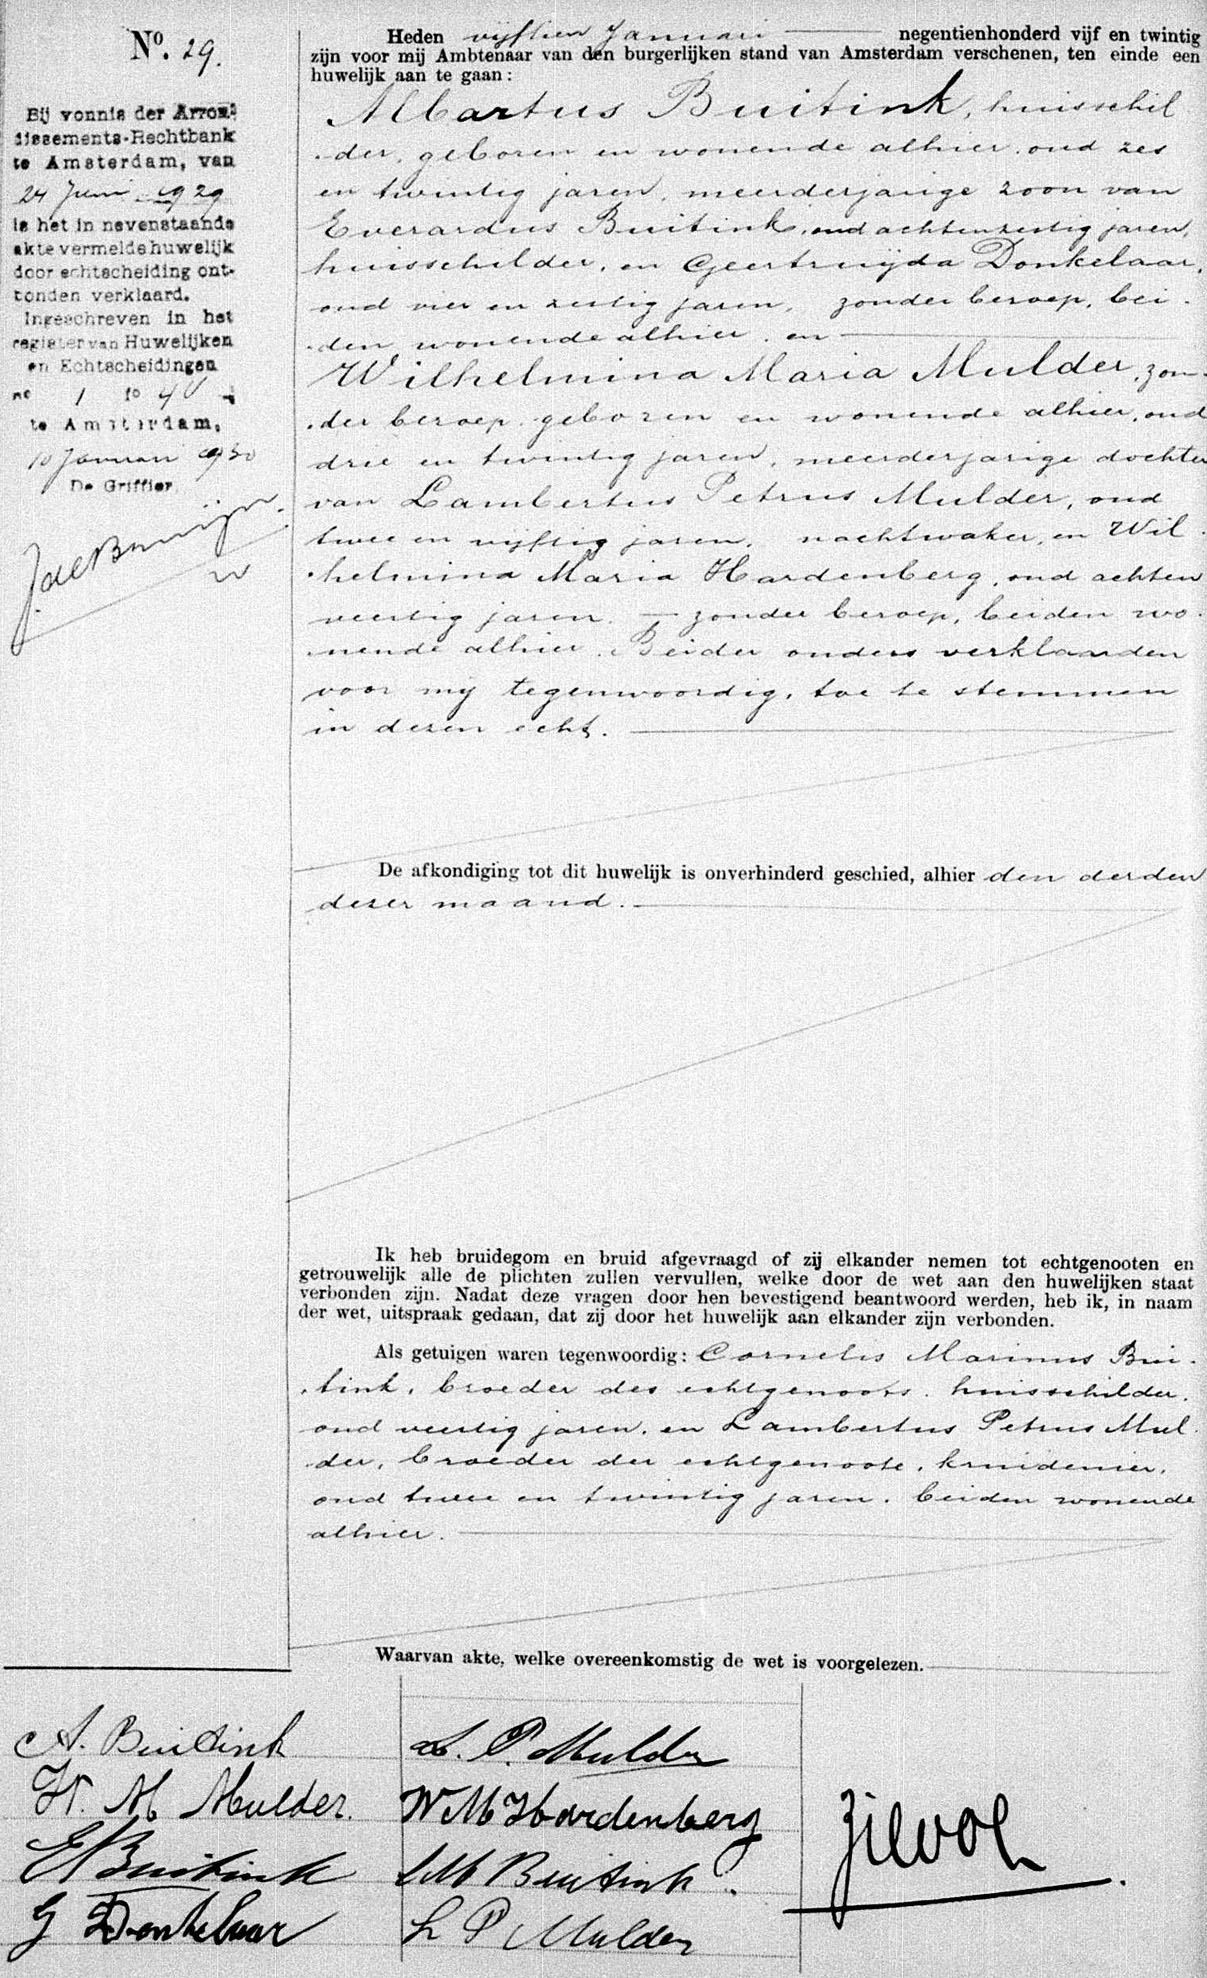 No. 29.
Bij vonnis der Arron-
dissements-Rechtbank
te Amsterdam, van
24 Juni 1929
is het in nevenstaande
akte vermelde huwelijk
door echtscheiding ont-
bonden verklaard.
Ingeschreven in het
register van Huwelijken
en Echtscheidingen
no 1 fo 40
te Amsterdam,
10 Januari 1930
De Griffier,
Heden vijftien Januari negentienhonderd vijf en twintig
zijn voor mij Ambtenaar van den burgerlijken stand van Amsterdam verschenen, ten einde een
huwelijk aan te gaan:
Albartus Buitink, huisschil
der, geboren en wonende alhier, oud zes
en twintig jaren, meerderjarige zoon van
Everardus Buitink, oud achtenzestig jaren,
huisschilder, en Geertruijda Donkelaar,
oud vier en zestig jaren, zonder beroep, bei-
den wonende alhier, en
Wilhelmina Maria Mulder, zon-
der beroep, geboren en wonende alhier, oud
drie en twintig jaren, meerderjarige dochter
van Lambertus Petrus Mulder, oud
twee en vijftig jaren, nachtwaker, en Wil-
helmina Maria Hardenberg, oud achten
veertig jaren, zonder beroep, beiden wo-
nende alhier. Beider ouders verklaarden
voor mij tegenwoordig, toe te stemmen
in dezen echt.
De afkondiging tot dit huwelijk is onverhinderd geschied, alhier den derden
dezer maand.
Ik heb bruidegom en bruid afgevraagd of zij elkander nemen tot echtgenooten en
getrouwelijk alle de plichten zullen vervullen, welke door de wet aan den huwelijken staat
verbonden zijn. Nadat deze vragen door hen bevestigend beantwoord werden, heb ik, in naam
der wet, uitspraak gedaan, dat zij door het huwelijk aan elkander zijn verbonden.
Als getuigen waren tegenwoordig: Cornelis Marinus Bui-
tink, broeder des echtgenoots, huisschilder,
oud veertig jaren, en Lambertus Petrus Mul-
der, broeder der echtgenoote, kruidenier,
oud twee en twintig jaren, beiden wonende
alhier.
Waarvan akte, welke overeenkomstig de wet is voorgelezen.
A. Buitink
W. M Mulder.
E Buitink
G Donkelaar
L. P. Mulder
W M Hardenberg
C M Buitink.
L P Mulder